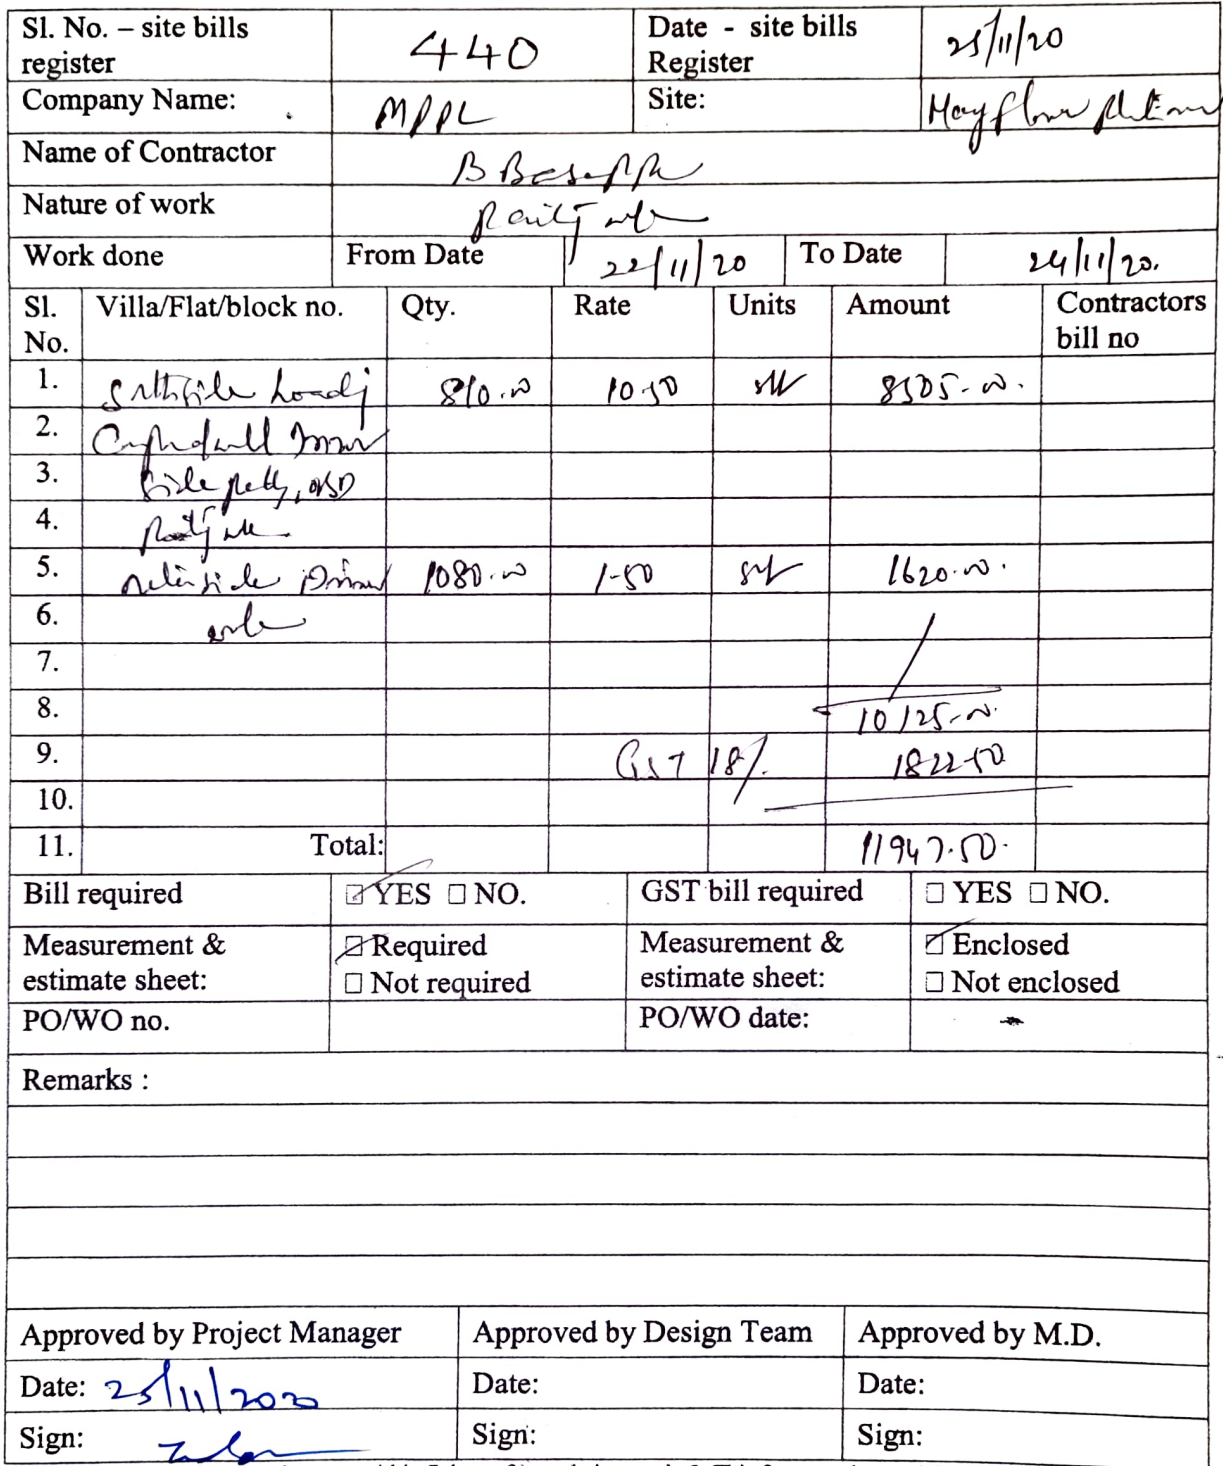 Sl. No. – site bills register 440 Date - site bills Register 25/11/20
Company Name: MPPL Site: Mayflower Platinum
Name of Contractor B Basappa
Nature of work Painting work
Work done From Date 22/11/20 To Date 24/11/20.
Sl. No. Villa/Flat/block no. Qty. Rate Units Amount Contractors bill no
1. 810.00 10.50 sft 8505-00.
2.
3. side
4. Painting work
5. side 1080.00 1-50 sft 1620.00.
6. work
7.
8. 10125-00.
9. GST 18% 1822-50
10.
11. Total: 11947.50.
Bill required ☑ YES ☐ NO. GST bill required ☐ YES ☐ NO.
Measurement & estimate sheet: ☑ Required ☐ Not required Measurement & estimate sheet: ☑ Enclosed ☐ Not enclosed
PO/WO no. PO/WO date:
Remarks :
Approved by Project Manager Approved by Design Team Approved by M.D.
Date: 25/11/2020 Date: Date:
Sign: Sign: Sign: